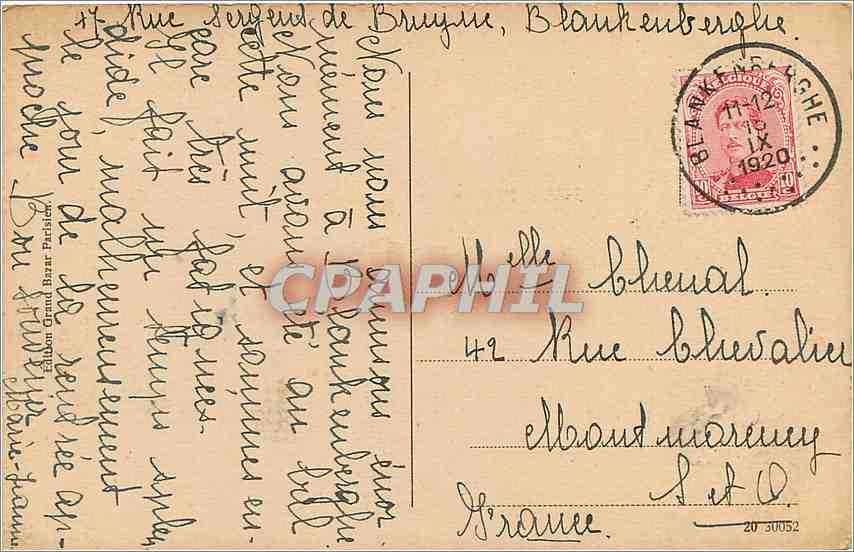 47 Rue Sergent de Bruyne, Blankenberghe.
Nous nous amusons énor-
mément à Blankenberghe
Nous avons été au bal
cette nuit, et sommes en-
core très fatiguées.
Il fait un temps splen
dide, malheureusement
le jour de la rentrée ap-
proche Bon souvenir
Marie-Jeanne
Edition Grand Bazar Parisien.
BLANKENBERGHE
11-12
IX
1920
BELGIQUE
10 10
BELGIË
CPAPHIL
Melle Chenal.
42 Rue Chevalier
Montmorency
S et O.
France.
20 30052